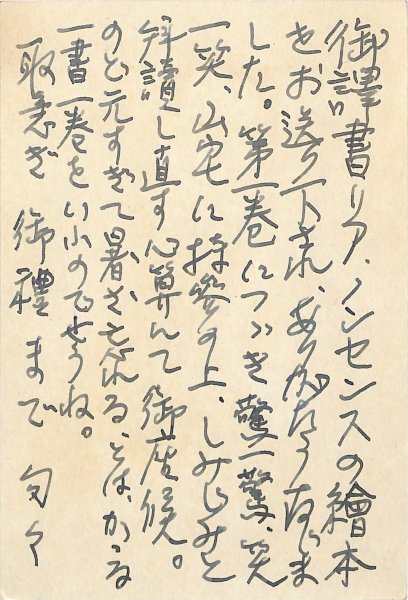 御譯書リア、ノンセンスの繪本
をお送り下され、ありがたうあじま
した。第一巻につゞき驚一驚、笑
一笑、山宅に持參の上、しみじみと
拜讀し直す心算にて御座候。
のど元すぎて暑さを忘る、とは、かゝる
一書一巻をいふのでせうね。
取急ぎ 御禮まで 匆々